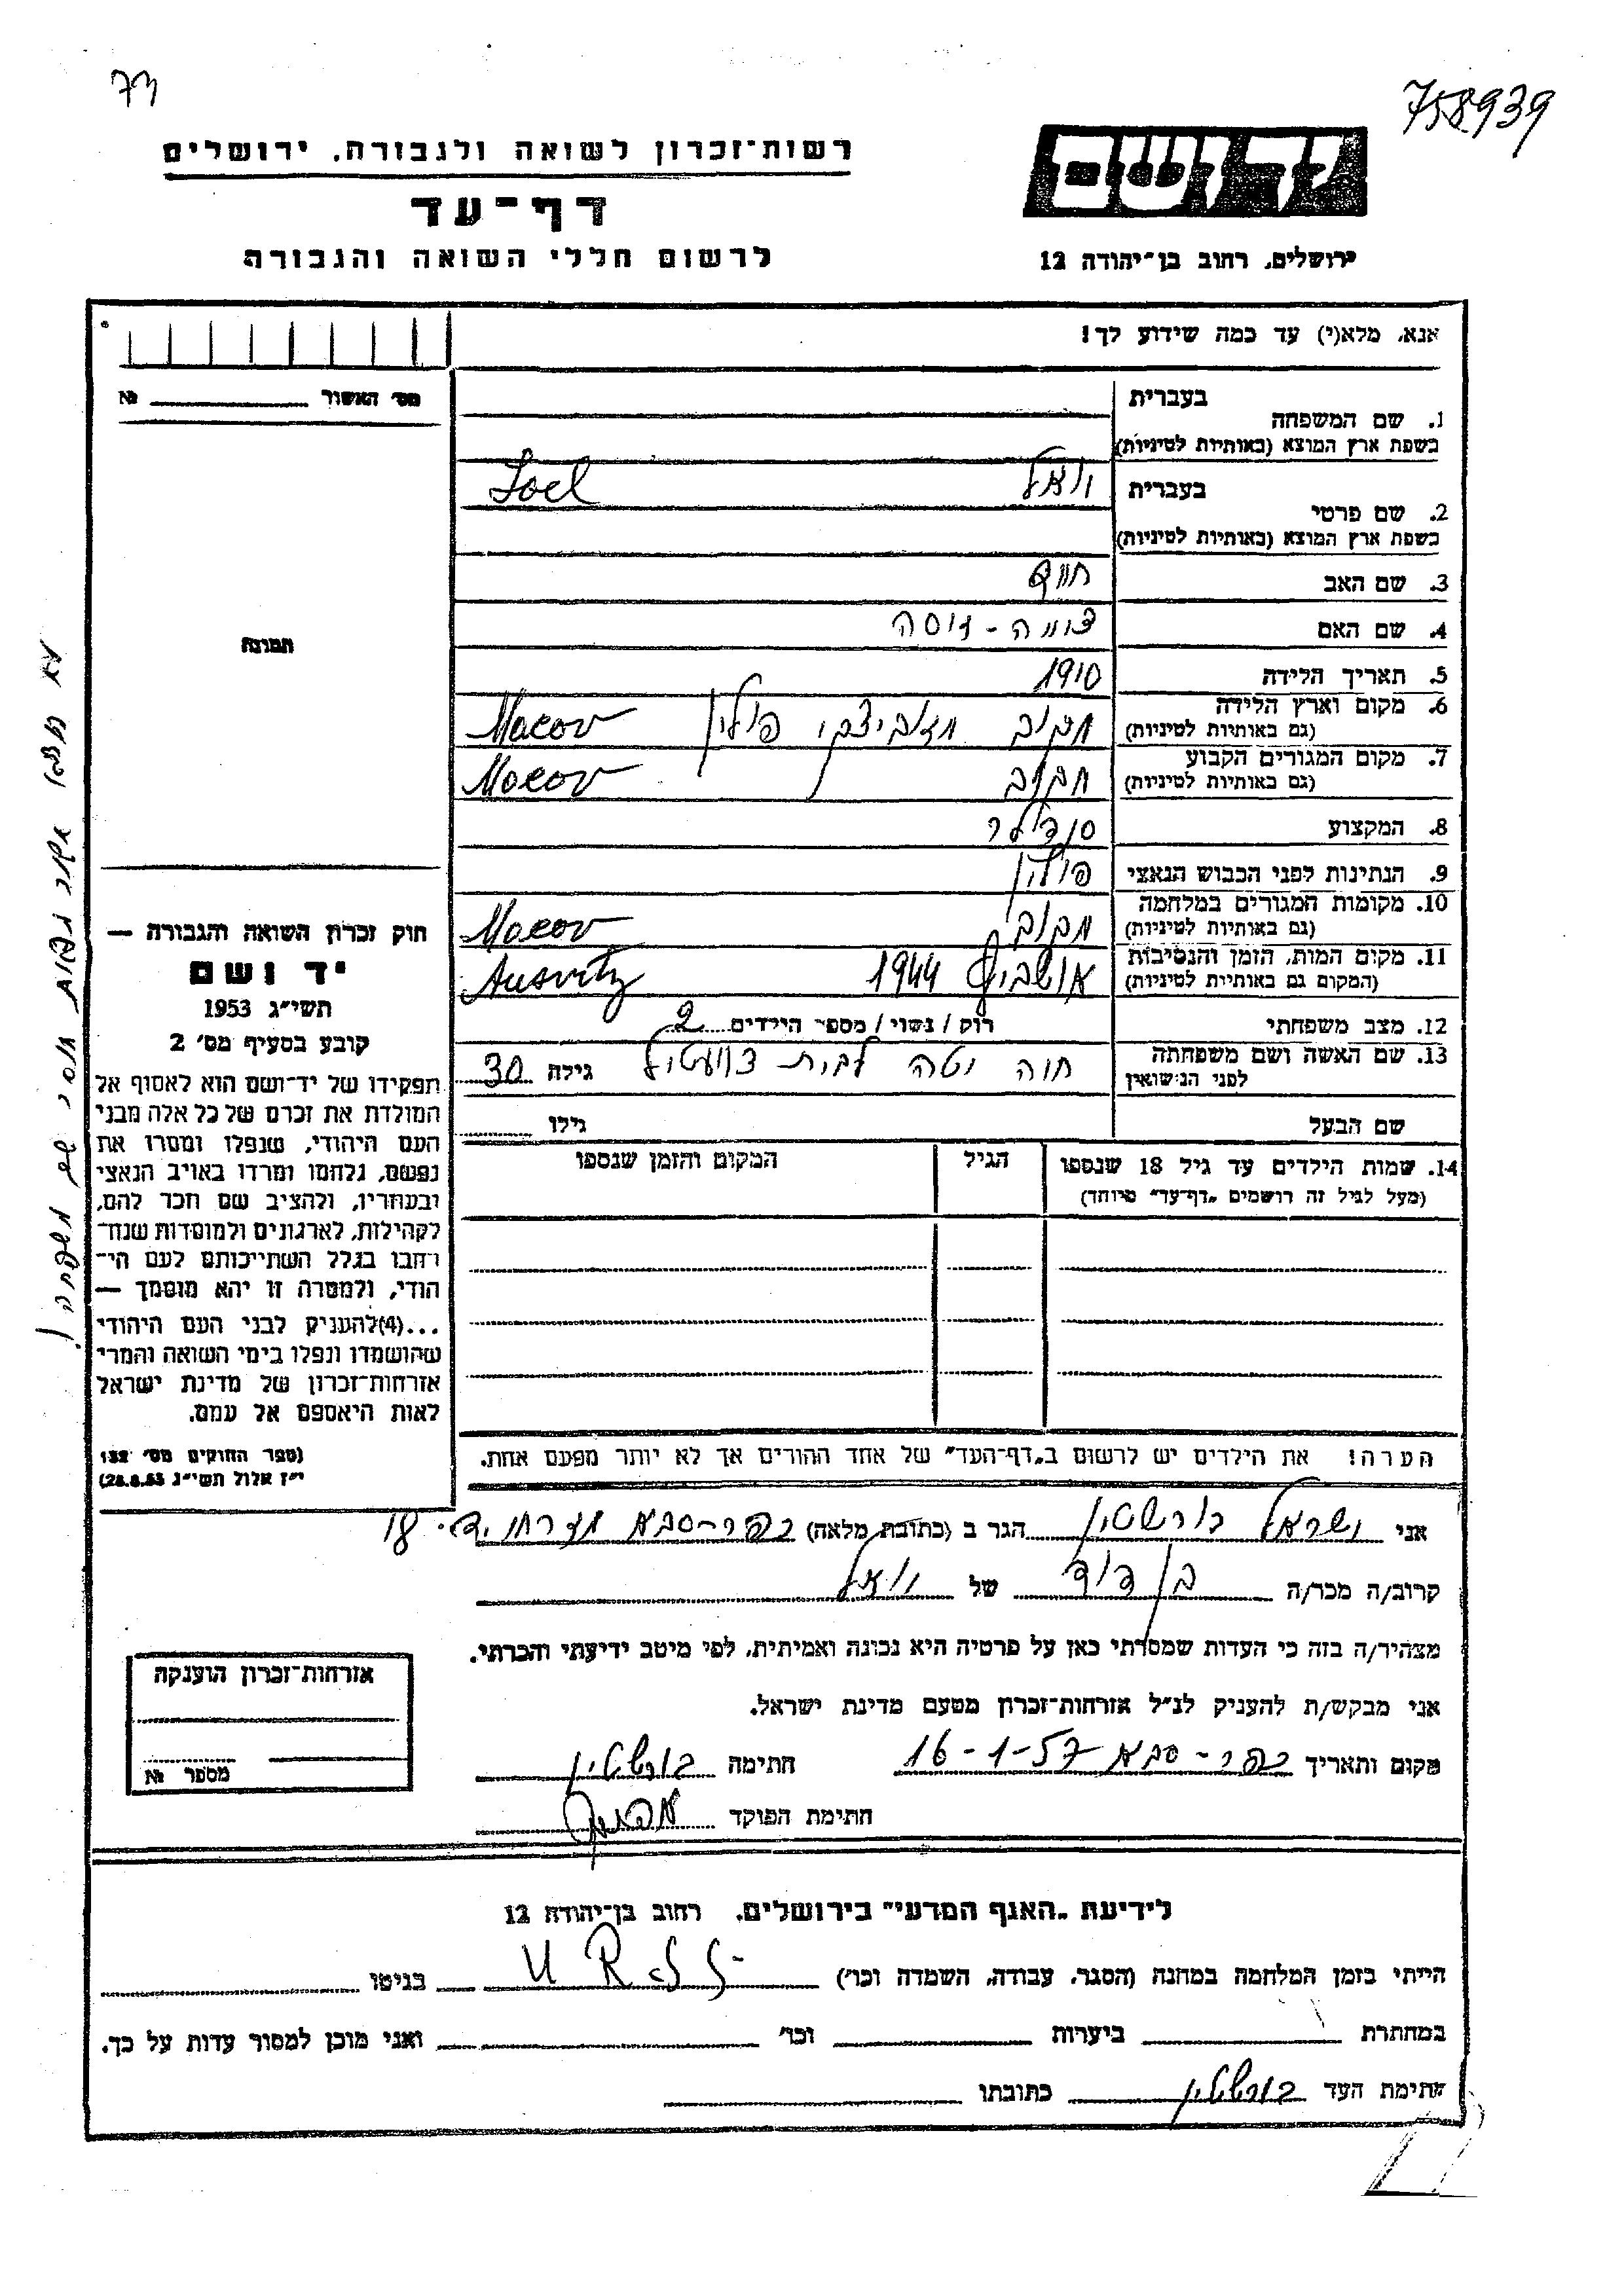 758939
רשות־זכרון לשואה ולגבורה, ירושלים
יד ושם
דף־עד
לרשום חללי השואה והגבורה
ירושלים, רחוב בן־יהודה 12
אנא, מלא(י) עד כמה שידוע לך!
מס׳ האשור №
בעברית
1. שם המשפחה
בשפת ארץ המוצא (באותיות לטיניות)
בעברית יואל Joel
2. שם פרטי
בשפת ארץ המוצא (באותיות לטיניות)
3. שם האב
4. שם האם
5. תאריך הלידה 1910
6. מקום וארץ הלידה מקוב מזוביצקי פולין Macov
(גם באותיות לטיניות)
7. מקום המגורים הקבוע מקוב Macov
(גם באותיות לטיניות)
8. המקצוע סנדלר
9. הנתינות לפני הכבוש הנאצי פולין
10. מקומות המגורים במלחמה מקוב Macov
(גם באותיות לטיניות)
11. מקום המות, הזמן והנסיבות אושביץ 1944 Ausvitz
(המקום גם באותיות לטיניות)
12. מצב משפחתי רוק / נשוי / מספר הילדים 2
13. שם האשה ושם משפחתה חוה יטה לבית גילה 30
לפני הנישואין
שם הבעל גילו
14. שמות הילדים עד גיל 18 שנספו הגיל המקום והזמן שנספו
(מעל לגיל זה רושמים „דף־עד” מיוחד)
הערה! את הילדים יש לרשום ב„דף־העד” של אחד ההורים אך לא יותר מפעם אחת.
תמונה
חוק זכרון השואה והגבורה —
יד ושם
תשי״ג 1953
קובע בסעיף מס׳ 2
תפקידו של יד־ושם הוא לאסוף אל
המולדת את זכרם של כל אלה מבני
העם היהודי, שנפלו ומסרו את
נפשם, נלחמו ומרדו באויב הנאצי
ובעוזריו, ולהציב שם וזכר להם,
לקהילות, לארגונים ולמוסדות שנח־
רבו בגלל השתייכותם לעם הי־
הודי, ולמטרה זו יהא מוסמך —
...(4)להעניק לבני העם היהודי
שהושמדו ונפלו בימי השואה והמרי
אזרחות־זכרון של מדינת ישראל
לאות היאספם אל עמם.
(ספר החוקים מס׳ 132
י״ז אלול תשי״ג 28.8.53)
אני ישראל בורשטין הגר ב (כתובת מלאה) כפר-סבא 18
קרוב/ה מכר/ה בן דוד של יואל
מצהיר/ה בזה כי העדות שמסרתי כאן על פרטיה היא נכונה ואמיתית, לפי מיטב ידיעתי והכרתי.
אני מבקש/ת להעניק לנ״ל אזרחות־זכרון מטעם מדינת ישראל.
מקום ותאריך כפר-סבא 16-1-57 חתימה בורשטין
חתימת הפוקד
אזרחות־זכרון הוענקה
מספר №
לידיעת „האגף המדעי” בירושלים, רחוב בן־יהודה 12
הייתי בזמן המלחמה במחנה (הסגר, עבודה, השמדה וכו׳) בגיטו
במחתרת ביערות וכו׳ ואני מוכן למסור עדות על כך.
חתימת העד בורשטין כתובתו